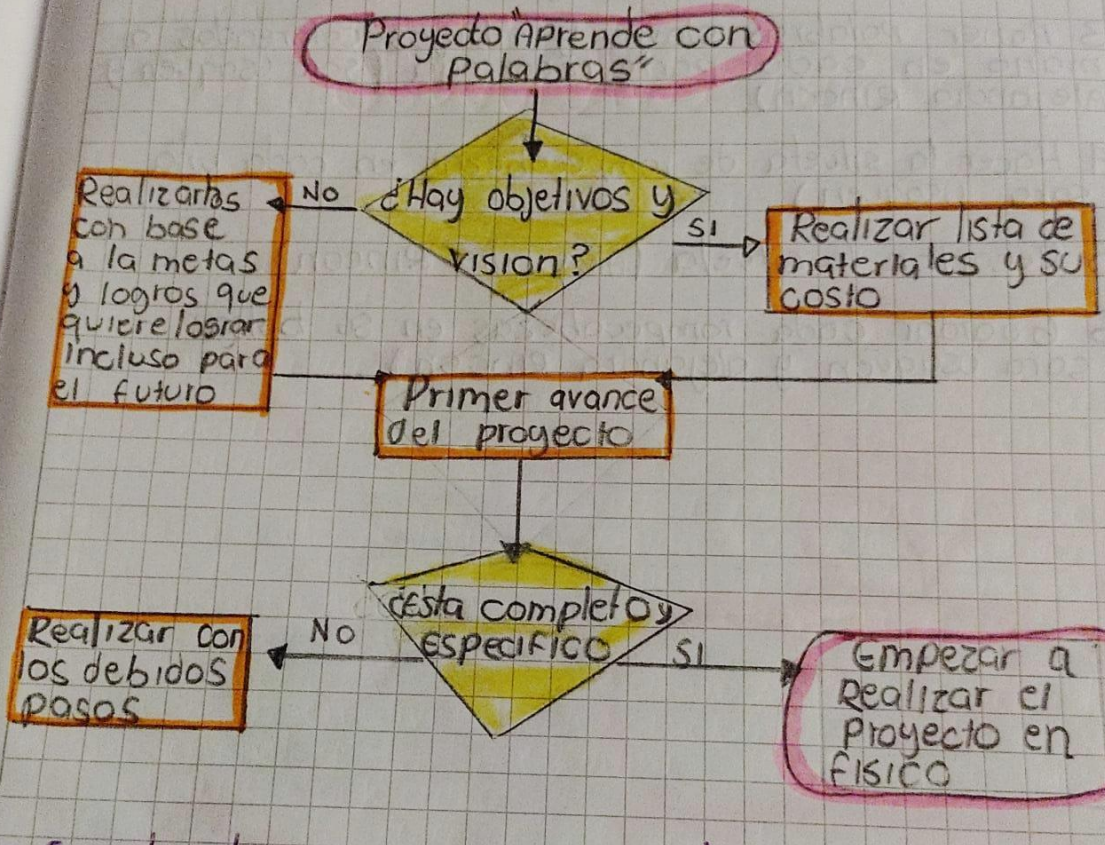 Proyecto "Aprende con
palabras"
¿Hay objetivos y
vision?
NO
SI
Realizarlos
con base
a la metas
y logros que
quiere losrar
incluso para
el futuro
Realizar lista de
materiales y su
costo
Primer avance
del proyecto
¿Esta completo y
ESPECIFICO
NO
SI
Realizar con
los debidos
pasos
Empezar a
Realizar el
Proyecto en
FISICO